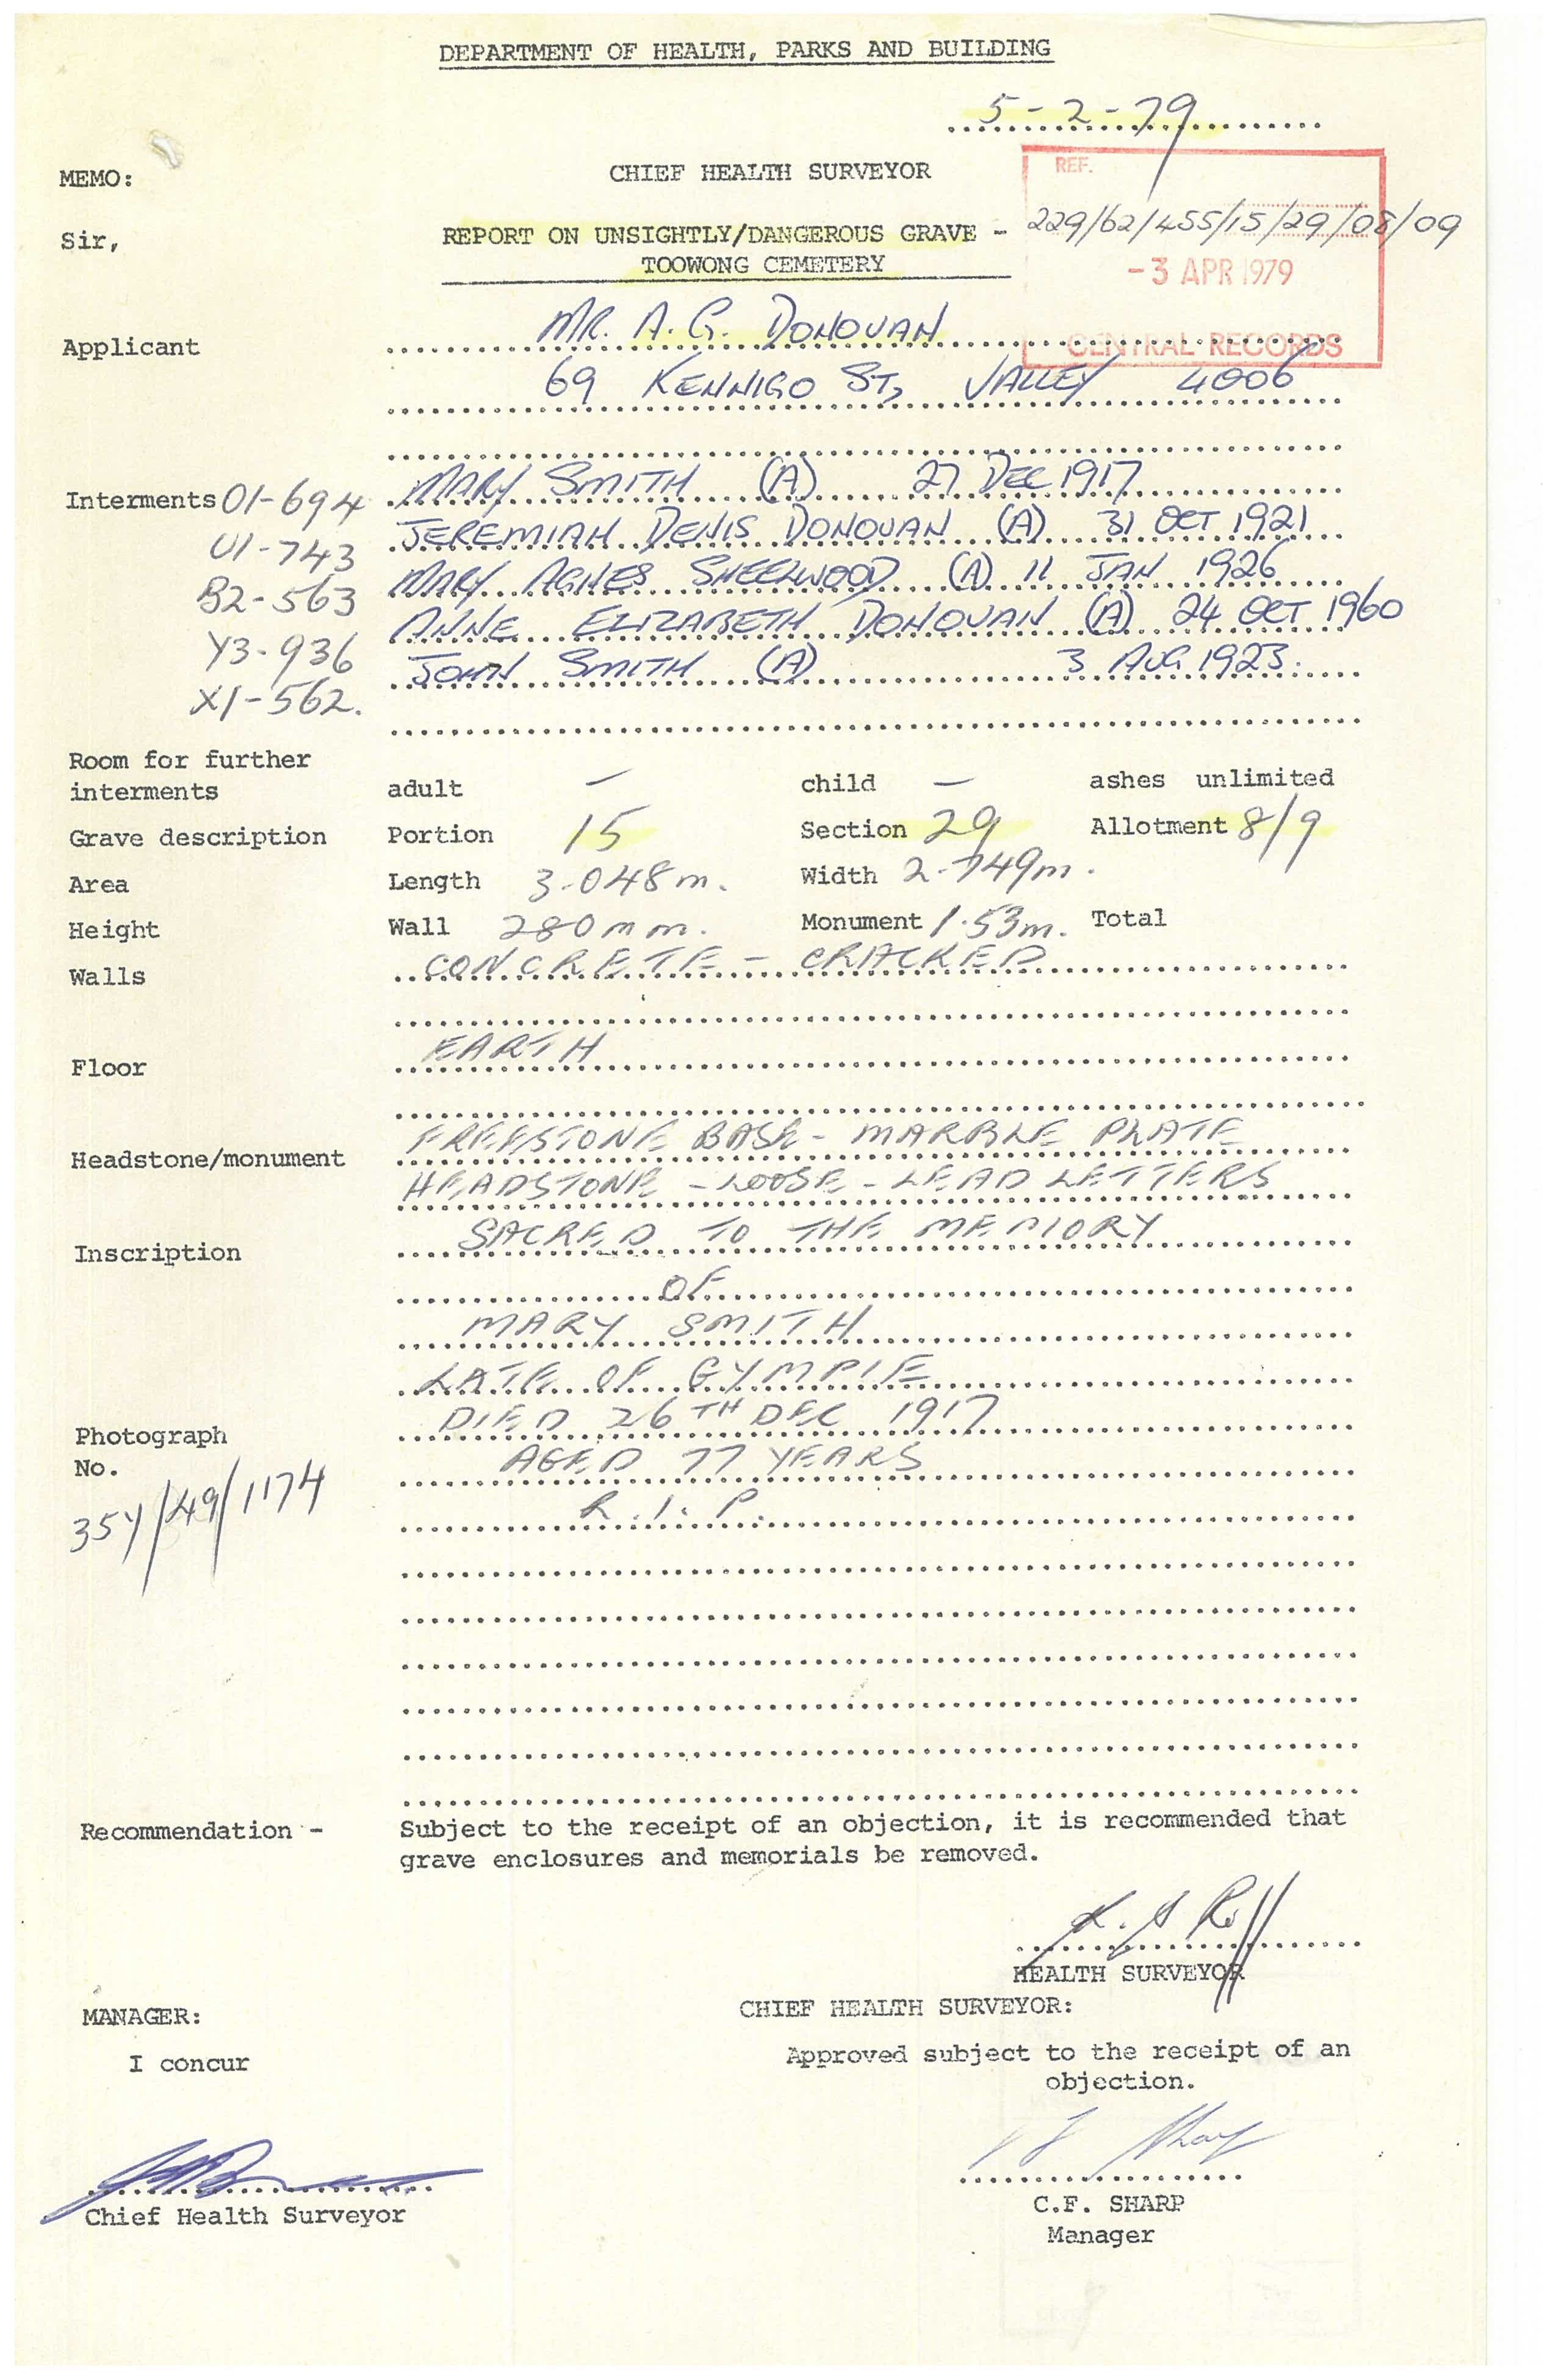 DEPARTMENT OF HEALTH, PARKS AND BUILDING
5-2-79
MEMO: CHIEF HEALTH SURVEYOR REF.
Sir, REPORT ON UNSIGHTLY/DANGEROUS GRAVE - 229/62/455/15/29/08/09
TOOWONG CEMETERY -3 APR 1979
Applicant MR. A. G. DONOVAN CENTRAL RECORDS
69 KENNIGO ST, VALLEY 4006
Interments 01-694 MARY SMITH (A) 27 DEC 1917
U1-743 JEREMIAH DENIS DONOVAN (A) 31 OCT 1921
B2-563 MARY AGNES SHEELWOOD (A) 11 JAN 1926
Y3-936 ANNE ELIZABETH DONOVAN (A) 24 OCT 1960
X1-562. JOHN SMITH (A) 3 AUG 1923.
Room for further
interments adult - child - ashes unlimited
Grave description Portion 15 Section 29 Allotment 8/9
Area Length 3.048m. Width 2.749m.
Height Wall 280mm. Monument 1.53m. Total
Walls CONCRETE - CRACKED
Floor EARTH
Headstone/monument FREESTONE BASE - MARBLE PLATE
HEADSTONE - LOOSE - LEAD LETTERS
Inscription SACRED TO THE MEMORY
OF
MARY SMITH
LATE OF GYMPIE
DIED 26TH DEC 1917
Photograph
No. AGED 77 YEARS
354/49/1174 R.I.P.
Recommendation - Subject to the receipt of an objection, it is recommended that
grave enclosures and memorials be removed.
HEALTH SURVEYOR
MANAGER: CHIEF HEALTH SURVEYOR:
I concur Approved subject to the receipt of an
objection.
Chief Health Surveyor C.F. SHARP
Manager